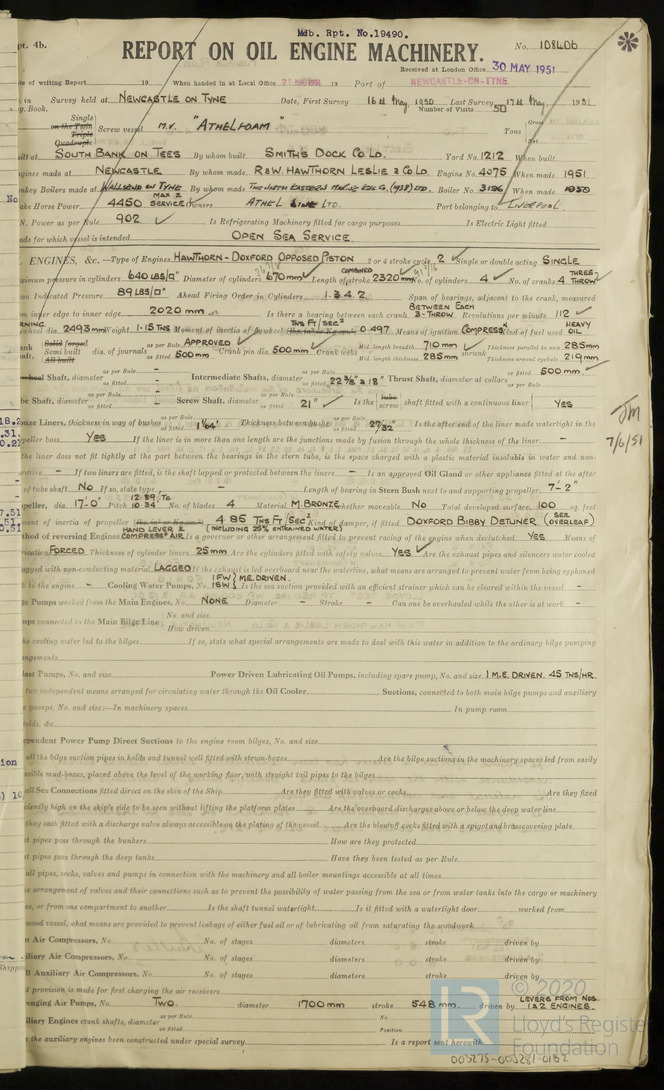 Mdb. Rpt. No.19490.
pt. 4b.
REPORT ON OIL ENGINE MACHINERY.
No. 108406
Received at London Office 30 MAY 1951
te of writing Report 19 When handed in at Local Office 19 Port of NEWCASTLE-ON-TYNE
in Survey held at NEWCASTLE ON TYNE Date, First Survey 16th May, 1950 Last Survey 17th May 1951
g. Book. Number of Visits 50
Single
on the Twin
Triple
Quadruple
Screw vessel M.V. "ATHELFOAM" Tons Gross
Net
ilt at SOUTH BANK ON TEES By whom built SMITHS DOCK CO. LD. Yard No. 1212 When built
gines made at NEWCASTLE By whom made R & W. HAWTHORN LESLIE & CO. LD. Engine No. 4075 When made 1951
nkey Boilers made at WALLSEND ON TYNE By whom made THE NORTH EASTERN MARINE ENG. CO. (1938) LTD Boiler No. 3196 When made 1950
ake Horse Power 4450 MAX & SERVICE Owners ATHEL LINE LTD. Port belonging to LIVERPOOL
N. Power as per Rule 902 Is Refrigerating Machinery fitted for cargo purposes Is Electric Light fitted
ade for which vessel is intended OPEN SEA SERVICE
ENGINES, &c. —Type of Engines HAWTHORN - DOXFORD OPPOSED PISTON 2 or 4 stroke cycle 2 Single or double acting SINGLE
ximum pressure in cylinders 640 LBS/□" Diameter of cylinders 670 mm Length of stroke COMBINED 2320 mm No. of cylinders 4 No. of cranks 4 THREE THROW
an Indicated Pressure 89 LBS/□" Ahead Firing Order in Cylinders 1.3.4.2 Span of bearings, adjacent to the crank, measured
om inner edge to inner edge 2020 mm Is there a bearing between each crank BETWEEN EACH 3-THROW Revolutions per minute 112
RNING wheel dia. 2493 mm Weight 1.15 TNS Moment of inertia of flywheel TNS FT/SEC² 0.497 Means of ignition COMPRESS Kind of fuel used HEAVY OIL
ank Solid forged
Semi built
All built
haft, dia. of journals as per Rule APPROVED as fitted 500 mm Crank pin dia. 500 mm Crank webs Mid. length breadth 710 mm Mid. length thickness 285 mm shrunk Thickness parallel to axis 285 mm Thickness around eyehole 219 mm
wheel Shaft, diameter as per Rule - as fitted - Intermediate Shafts, diameter as per Rule as fitted 22 3/8" & 18" Thrust Shaft, diameter at collars as per Rule as fitted 500 mm
be Shaft, diameter as per Rule - as fitted - Screw Shaft, diameter as per Rule as fitted 21" Is the tube screw shaft fitted with a continuous liner YES
onze Liners, thickness in way of bushes as per Rule as fitted 1 1/64" Thickness between bushes as per Rule as fitted 27/32" Is the after end of the liner made watertight in the
peller boss YES If the liner is in more than one length are the junctions made by fusion through the whole length of the liner -
the liner does not fit tightly at the part between the bearings in the stern tube, is the space charged with a plastic material insoluble in water and non-
rrosive - If two liners are fitted, is the shaft lapped or protected between the liners - Is an approved Oil Gland or other appliance fitted at the after
d of tube shaft NO If so, state type - Length of bearing in Stern Bush next to and supporting propeller 7'-2"
peller, dia. 17'-0" Pitch 12.89 TO 10.34 No. of blades 4 Material M. BRONZE whether moveable NO Total developed surface 100 sq. feet
ment of inertia of propeller 4.85 TNS FT/SEC² (INCLUDING 25% ENTRAINED WATER) Kind of damper, if fitted DOXFORD BIBBY DETUNER (SEE OVERLEAF)
thod of reversing Engines HAND LEVER & COMPRESS AIR Is a governor or other arrangement fitted to prevent racing of the engine when declutched YES Means of
rication FORCED Thickness of cylinder liners 25 mm Are the cylinders fitted with safety valves YES Are the exhaust pipes and silencers water cooled
agged with non-conducting material LAGGED If the exhaust is led overboard near the waterline, what means are arranged to prevent water from being syphoned
k to the engine - Cooling Water Pumps, No. 1 FW 1 SW } M.E. DRIVEN. Is the sea suction provided with an efficient strainer which can be cleared within the vessel -
ge Pumps worked from the Main Engines, No. NONE Diameter - Stroke - Can one be overhauled while the other is at work -
mps connected to the Main Bilge Line No. and size
How driven
he cooling water led to the bilges If so, state what special arrangements are made to deal with this water in addition to the ordinary bilge pumping
angements
last Pumps, No. and size Power Driven Lubricating Oil Pumps, including spare pump, No. and size 1 M.E. DRIVEN. 45 TNS/HR.
two independent means arranged for circulating water through the Oil Cooler Suctions, connected to both main bilge pumps and auxiliary
e pumps, No. and size:—In machinery spaces In pump room
olds, &c.
ependent Power Pump Direct Suctions to the engine room bilges, No. and size
all the bilge suction pipes in holds and tunnel well fitted with strum-boxes Are the bilge suctions in the machinery spaces led from easily
ssible mud-boxes, placed above the level of the working floor, with straight tail pipes to the bilges
all Sea Connections fitted direct on the skin of the Ship Are they fitted with valves or cocks Are they fixed
ciently high on the ship's side to be seen without lifting the platform plates Are the overboard discharges above or below the deep water line
they each fitted with a discharge valve always accessible on the plating of the vessel Are the blow off cocks fitted with a spigot and brass covering plate
t pipes pass through the bunkers How are they protected
t pipes pass through the deep tanks Have they been tested as per Rule
all pipes, cocks, valves and pumps in connection with the machinery and all boiler mountings accessible at all times
e arrangement of valves and their connections such as to prevent the possibility of water passing from the sea or from water tanks into the cargo or machinery
es, or from one compartment to another Is the shaft tunnel watertight Is it fitted with a watertight door worked from
wood vessel, what means are provided to prevent leakage of either fuel oil or of lubricating oil from saturating the woodwork
n Air Compressors, No. No. of stages diameters stroke driven by
iliary Air Compressors, No. No. of stages diameters stroke driven by
ll Auxiliary Air Compressors, No. No. of stages diameters stroke driven by
t provision is made for first charging the air receivers
enging Air Pumps, No. TWO. diameter 1700 mm stroke 548 mm. driven by LEVERS FROM NOS. 1 & 2 ENGINES.
iliary Engines crank shafts, diameter as per Rule as fitted No. Position
the auxiliary engines been constructed under special survey Is a report sent herewith
JM
7/6/51
© 2020
Lloyd's Registe
Foundation
LR
003275-003281-0182